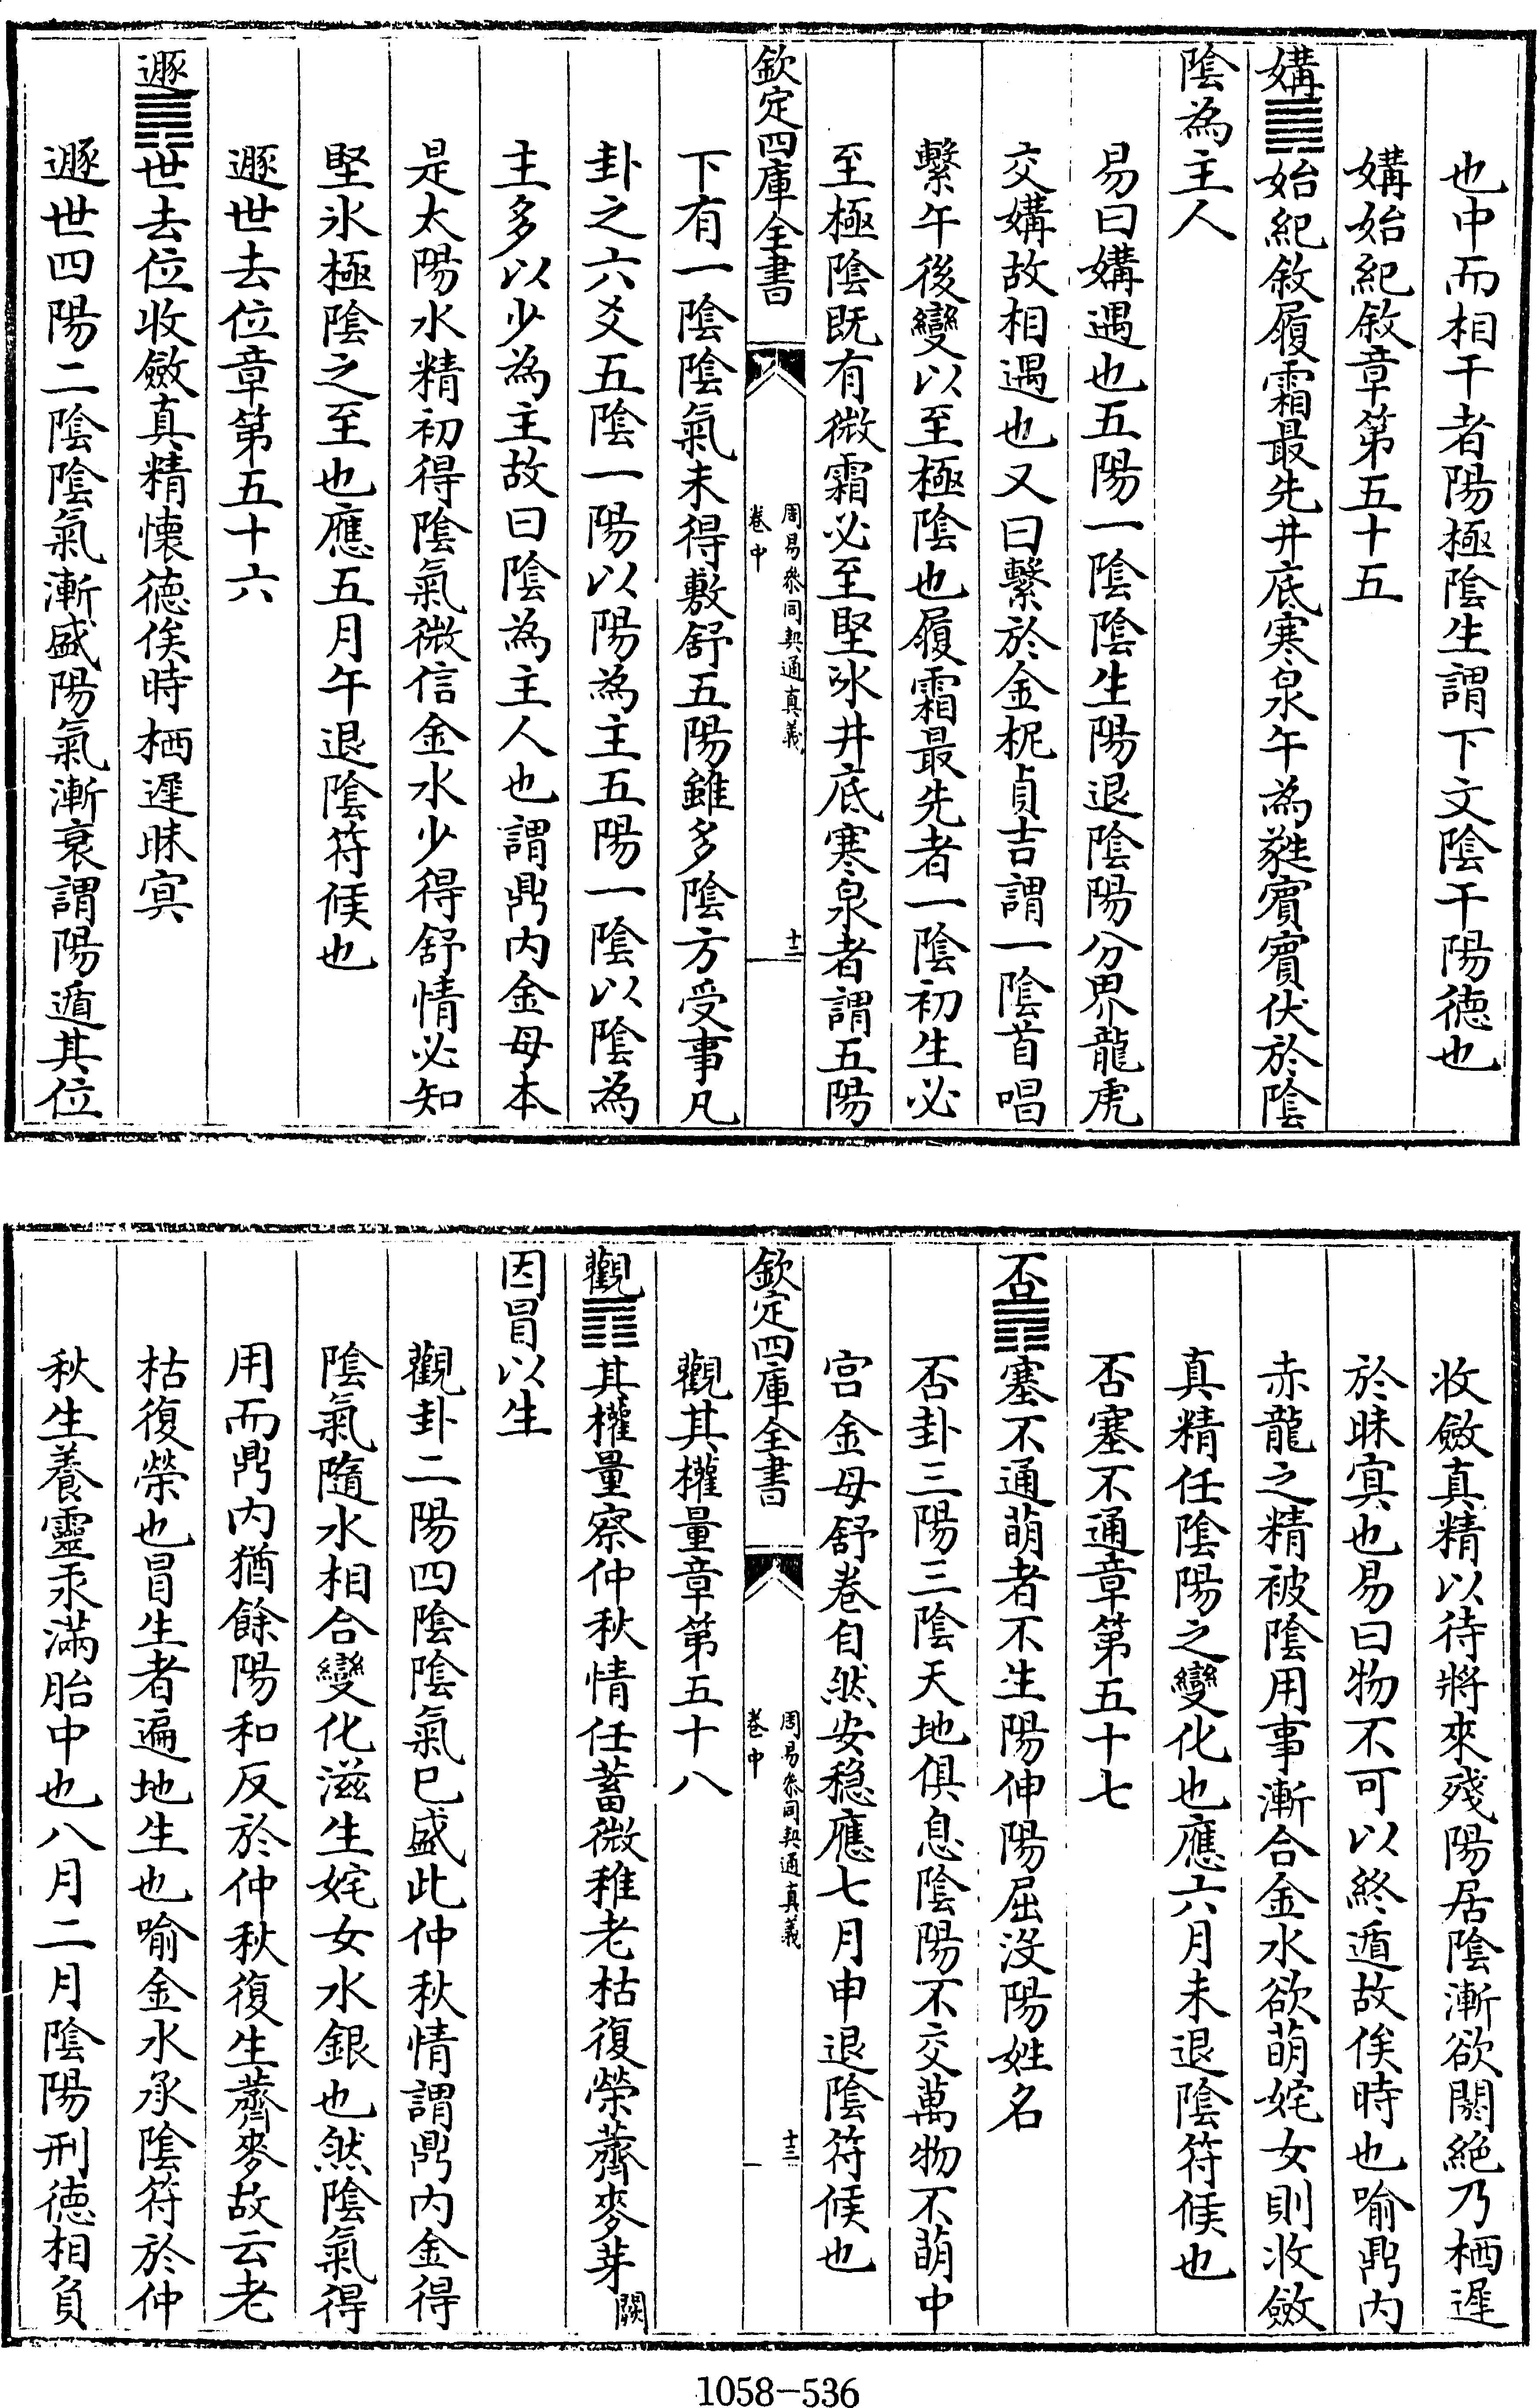 也中而相干者陽極陰生謂下文陰干陽徳也
媾始紀敘章第五十五
媾䷫始紀敘履霜最先井底寒泉午為蕤賓賓伏於陰
陰為主人
易曰媾遇也五陽一陰陰生陽退陰陽分界龍虎
交媾故相遇也又曰繫於金柅貞吉謂一陰首唱
繫午後變以至極陰也履霜最先者一陰初生必
至極陰既有微霜必至堅冰井底寒泉者謂五陽
欽定四庫全書
周易參同契通真義
卷中
十二
下有一陰陰氣未得敷舒五陽雖多陰方受事凡
卦之六爻五陰一陽以陽為主五陽一陰以陰為
主多以少為主故曰陰為主人也謂鼎内金母本
是太陽水精初得陰氣微信金水少得舒情必知
堅氷極陰之至也應五月午退陰符候也
遯世去位章第五十六
遯䷠世去位收斂真精懐徳俟時栖遲昧㝠
遯世四陽二陰陰氣漸盛陽氣漸衰謂陽遁其位
收斂真精以待將來殘陽居陰漸欲闕絶乃栖遲
於昧㝠也易曰物不可以終遁故俟時也喻鼎内
赤龍之精被陰用事漸合金水欲萌姹女則收斂
真精任陰陽之變化也應六月未退陰符候也
否塞不通章第五十七
否䷋塞不通萌者不生陽伸陽屈沒陽姓名
否卦三陽三陰天地俱息陰陽不交萬物不萌中
宫金母舒卷自然安穏應七月申退陰符候也
欽定四庫全書
周易參同契通真義
卷中
十三
觀其權量章第五十八
觀䷓其權量察仲秋情任蓄微稚老枯復榮薺麥芽闕
因冒以生
觀卦二陽四陰陰氣已盛此仲秋情謂鼎内金得
陰氣隨水相合變化滋生姹女水銀也然陰氣得
用而鼎内猶餘陽和反於仲秋復生薺麥故云老
枯復榮也冒生者遍地生也喻金水承陰符於仲
秋生養靈汞滿胎中也八月二月陰陽刑徳相負
1058-536